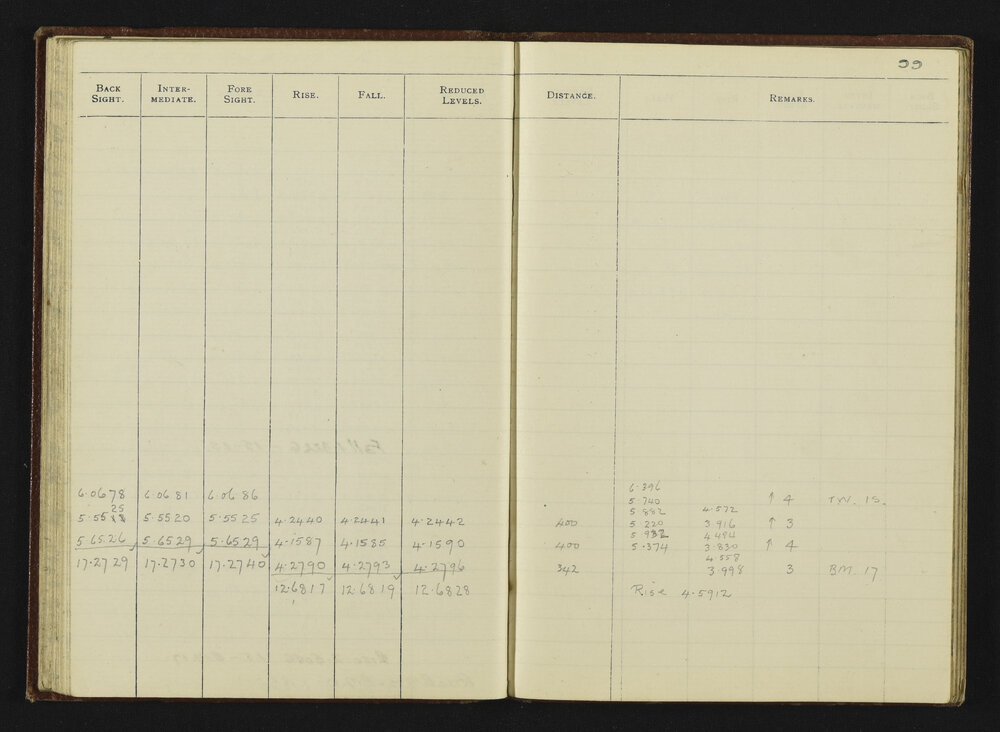 99
BACK SIGHT. INTER-MEDIATE. FORE SIGHT. RISE. FALL. REDUCED LEVELS. DISTANCE. REMARKS.
6.896
6.0678 6.0681 6.0686 5.740 ↑ 4 T.W. 18.
25
5.882 4.572
5.55 5.5520 5.5525 4.2440 4.2441 4.2442 400 5.220 3.916 ↑ 3
5.932 4.494
5.6526 5.6529 5.6529 4.1587 4.1585 4.1590 400 5.374 3.830 ↑ 4
4.558
17.2729 17.2730 17.2740 4.2790 4.2793 4.2796 342 3.998 3 BM 17
12.6817 12.6819 12.6828 Rise 4.5912